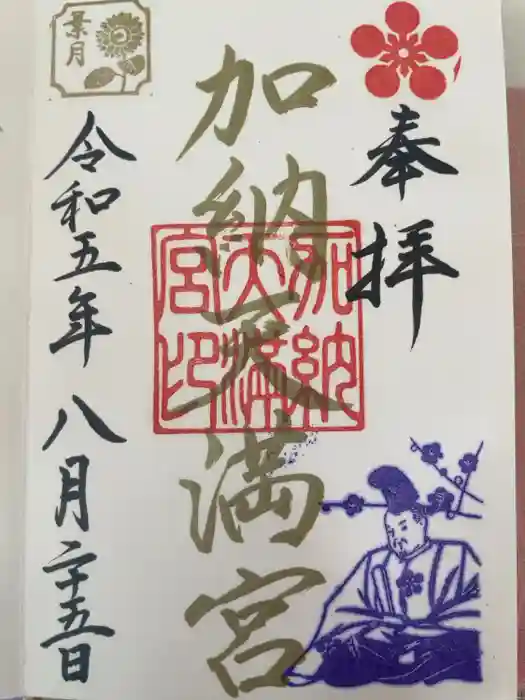 奉拝
加納天満宮
加納
天満
宮印
葉月
令和五年八月二十五日